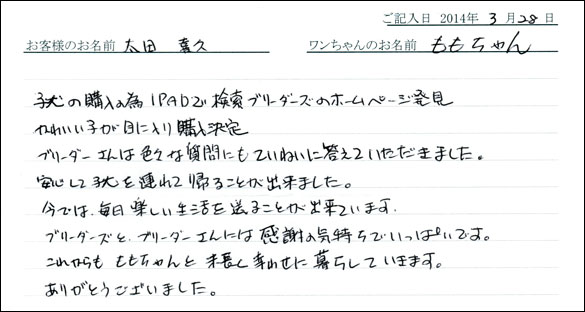 ご記入日 2014年 3月 28日
お客様のお名前 太田 喜久 ワンちゃんのお名前 ももちゃん
子犬の購入の為IPADで検索ブリーダーズのホームページ発見
かわいい子が目に入り購入決定
ブリーダーさんは色々な質問にもていねいに答えていただきました。
安心して子犬を連れて帰ることが出来ました。
今では、毎日楽しい生活を送ることが出来ています.
ブリーダーズと、ブリーダーさんには感謝の気持ちでいっぱいです。
これからも ももちゃんと 末長く幸わせに暮らしていきます。
ありがとうございました。